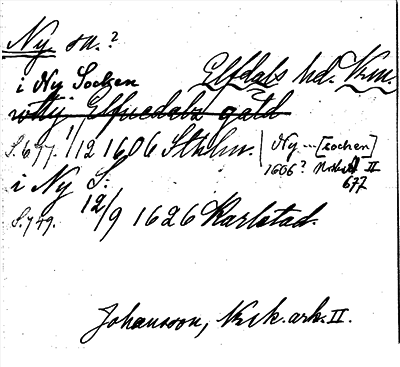 Ny. sn.?
i Ny Socken Elfdals hd. Vrm.
S. 677. 1/12 1606 Sthlm. Ny --- [sochen]
1606? II
677
i Ny S:
S. 749. 12/9 1626 Karlstad.
Johansson, Vrk. ark. II.